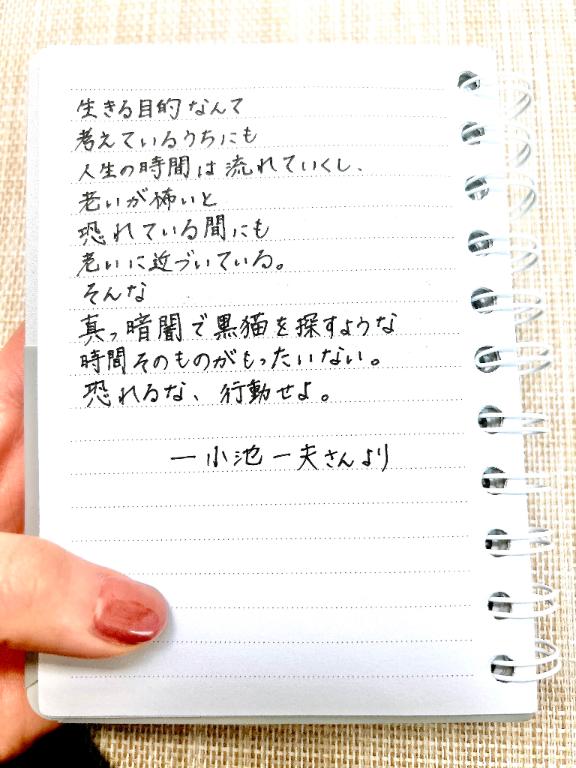 生きる目的なんて
考えているうちにも
人生の時間は流れていくし、
老いが怖いと
恐れている間にも
老いに近づいている。
そんな
真っ暗闇で黒猫を探すような
時間そのものがもったいない。
恐れるな、行動せよ。
一小池一夫さんより